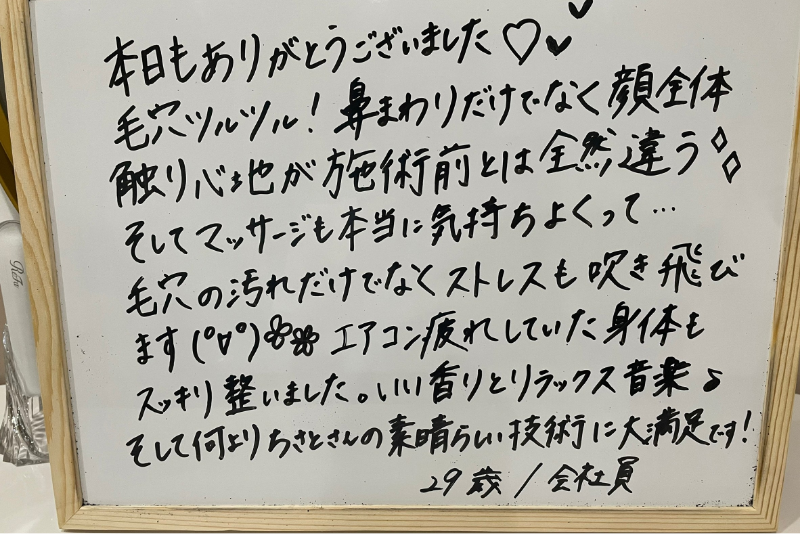 本日もありがとうございました♡♥
毛穴ツルツル！鼻まわりだけでなく顔全体
触り心地が施術前とは全然違う✧
そしてマッサージも本当に気持ちよくって…
毛穴の汚れだけでなくストレスも吹き飛び
ます(°▽°)✿✿エアコン疲れしていた身体も
スッキリ整いました。いい香りとリラックス音楽♪
そして何よりちさとさんの素晴らしい技術に大満足です！
29歳/会社員
ReFa